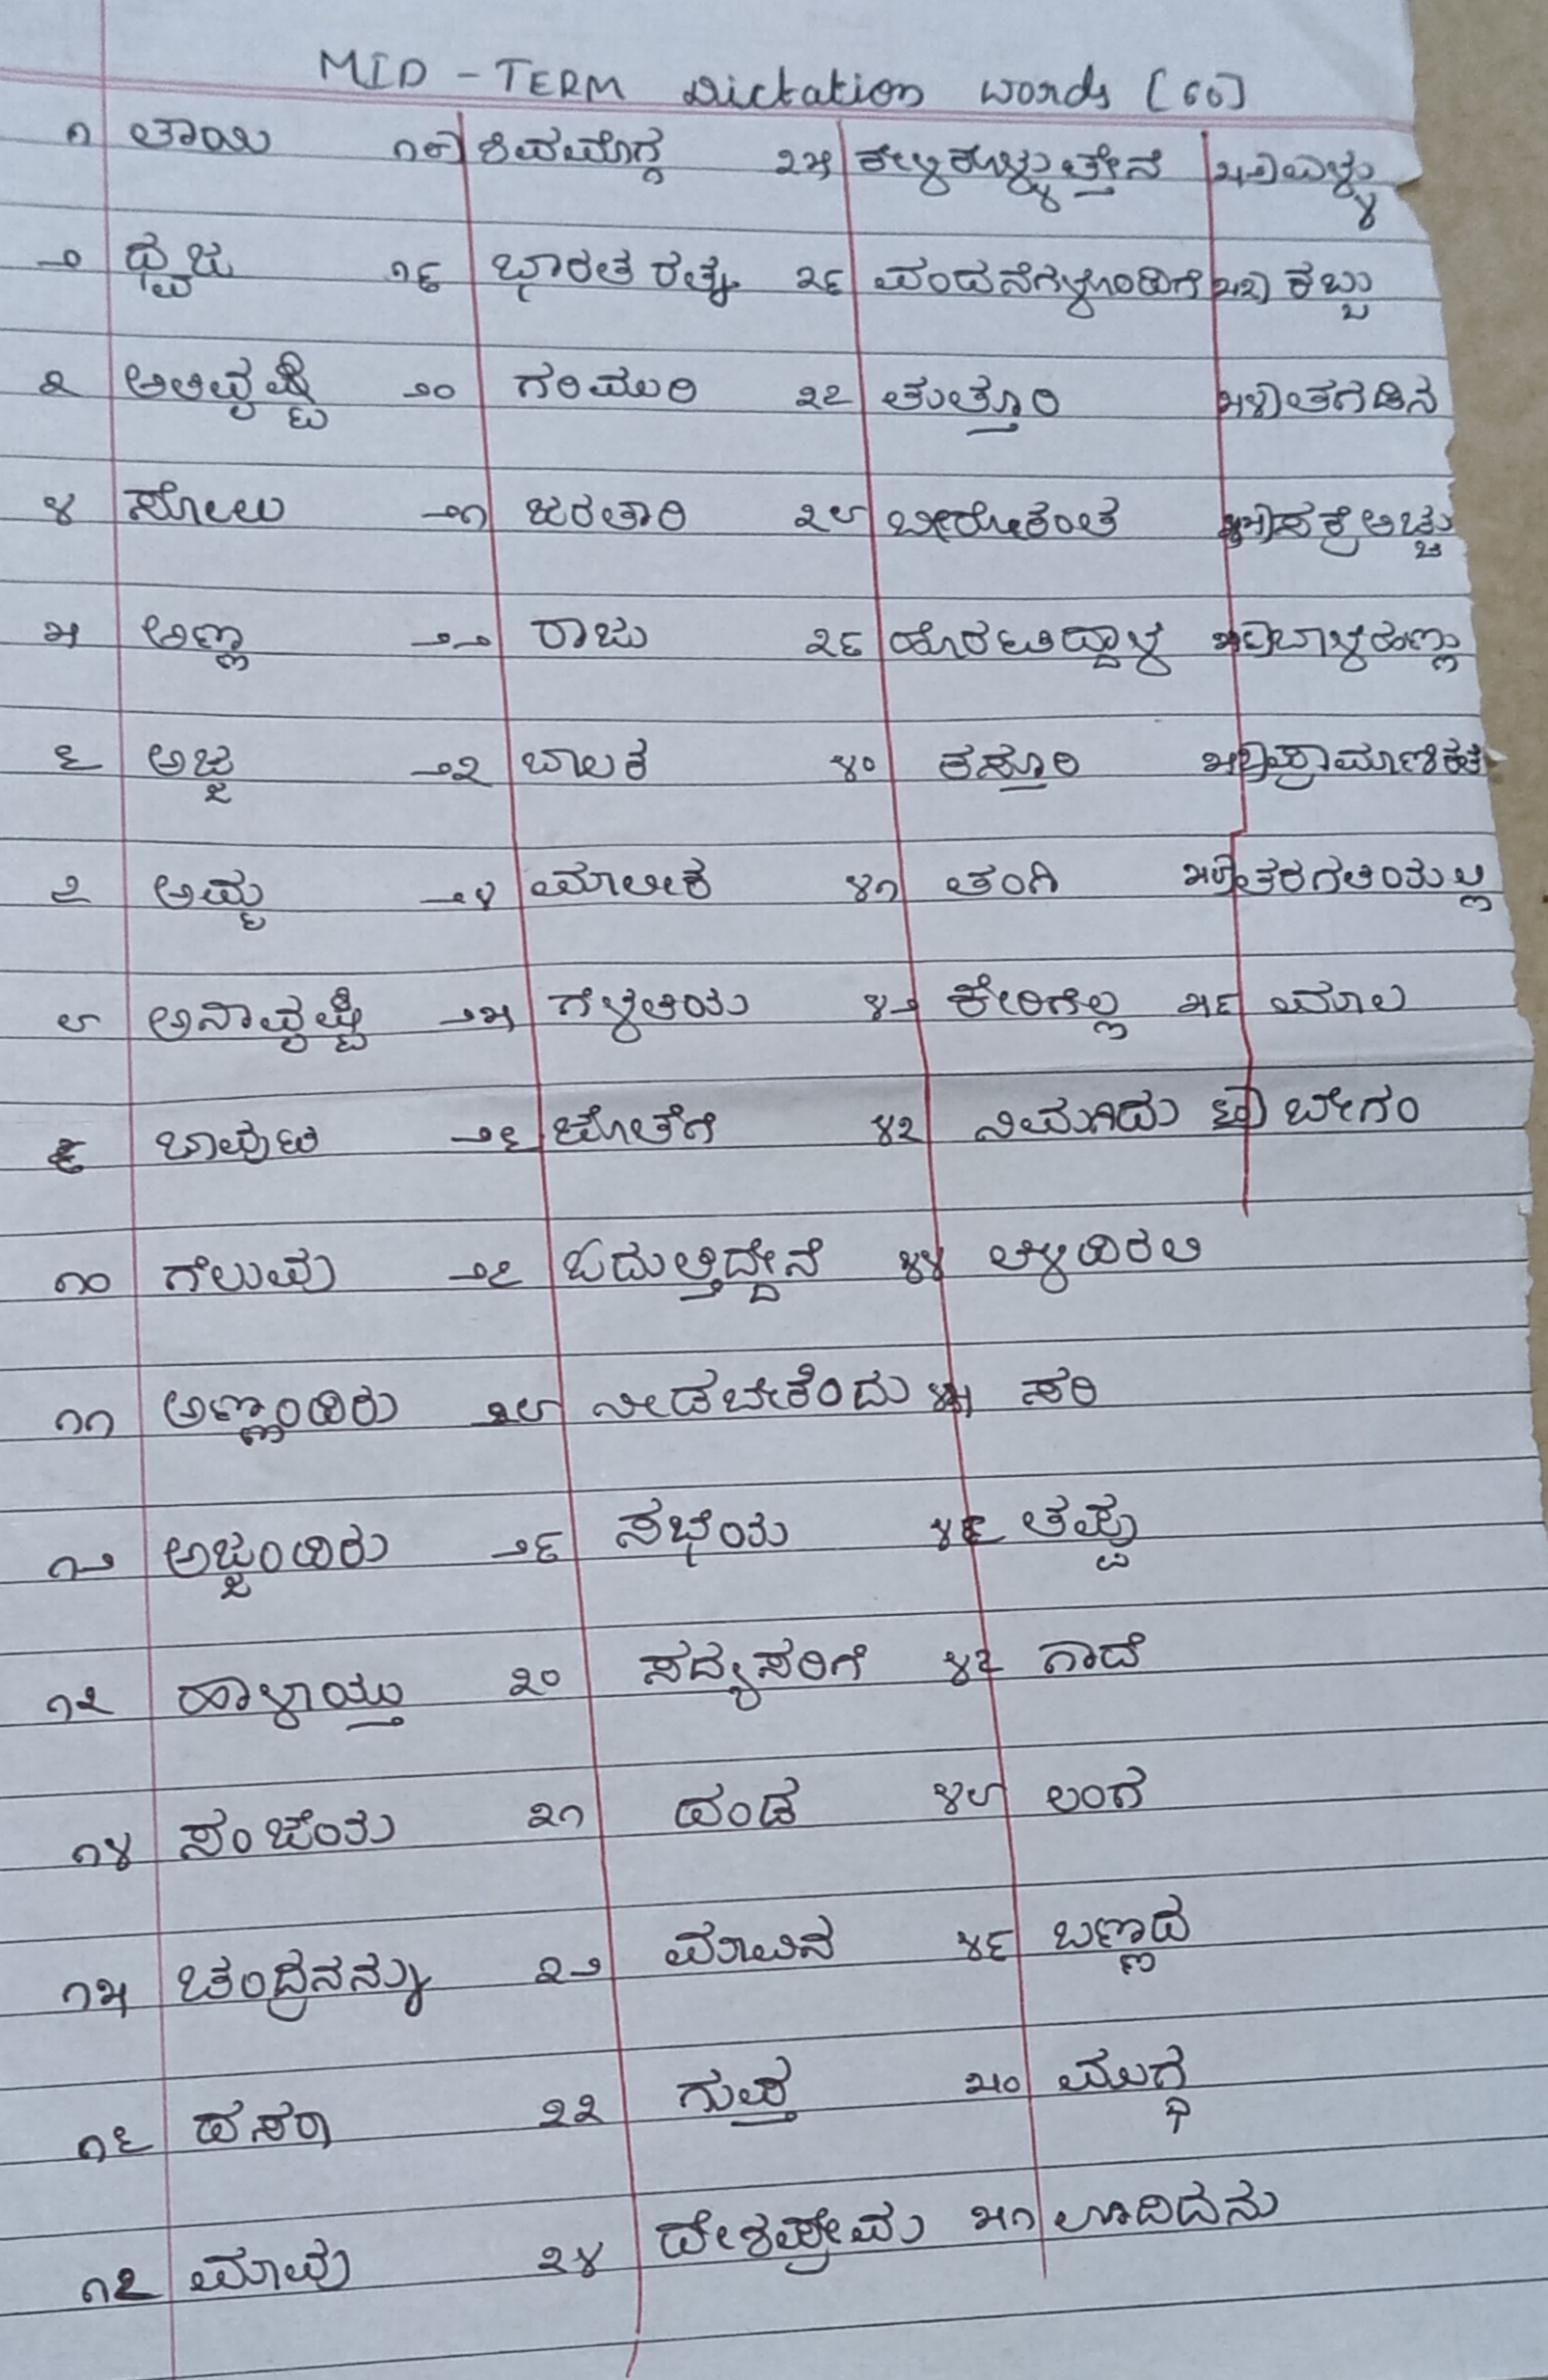 MID - TERM Dictation words [60]
೧ ತಾಯಿ
೨ ಧ್ವಜ
೩ ಅತಿವೃಷ್ಟಿ
೪ ಸೋಲು
೫ ಅಣ್ಣ
೬ ಅಜ್ಜ
೭ ಅಮ್ಮ
೮ ಅನಾವೃಷ್ಟಿ
೯ ಬಾವುಟ
೧೦ ಗೆಲುವು
೧೧ ಅಣ್ಣಂದಿರು
೧೨ ಅಜ್ಜಂದಿರು
೧೩ ಹಾಳಾಯ್ತು
೧೪ ಸಂಜೆಯ
೧೫ ಚಂದ್ರನನ್ನು
೧೬ ದಸರಾ
೧೭ ಮಾವು
೧೮) ಶಿವಮೊಗ್ಗ
೧೯ ಭಾರತ ರತ್ನ
೨೦ ಗರಿಮುರಿ
೨೧ ಜರತಾರಿ
೨೨ ರಾಜು
೨೩ ಬಾಲಕ
೨೪ ಮಾಲೀಕ
೨೫ ಗೆಳತಿಯ
೨೬ ಜೊತೆಗೆ
೨೭ ಓದುತ್ತಿದ್ದೇನೆ
೨೮ ನೀಡಬೇಕೆಂದು
೨೯ ಸಭೆಯ
೩೦ ಸದ್ಯಸರಿಗೆ
೩೧ ದಂಡ
೩೨ ಮಾವಿನ
೩೩ ಗುಪ್ತ
೩೪ ದೇಶಪ್ರೇಮ
೩೫ ಕೇಳಿಕೊಳ್ಳುತ್ತೇನೆ
೩೬ ವಂದನೆಗಳೊಂದಿಗೆ
೩೭ ತುತ್ತೂರಿ
೩೮ ಬೀರೋಕಂತ
೩೯ ಹೊರಟಿದ್ದಾಳೆ
೪೦ ಕಸ್ತೂರಿ
೪೧ ತಂಗಿ
೪೨ ಕೇರಿಗೆಲ್ಲ
೪೩ ನಿಮಗಿದು
೪೪ ತಿಳಿದಿರಲಿ
೪೫ ಸರಿ
೪೬ ತಪ್ಪು
೪೭ ಗಾದೆ
೪೮ ಲಂಗ
೪೯ ಬಣ್ಣದ
೫೦ ಮುಗ್ಧ
೫೧ ಊದಿದನು
೫೨) ಎಳ್ಳು
೫೩) ಕಬ್ಬು
೫೪) ತಗಡಿನ
೫೫) ಸಕ್ರೆಅಚ್ಚು
೫೬) ಬಾಳೆಹಣ್ಣು
೫೭) ಪ್ರಾಮಾಣಿಕತೆ
೫೮) ತರಗತಿಯಲ್ಲಿ
೫೯ ಮಾಲ
೬೦) ಬೇಗಂ